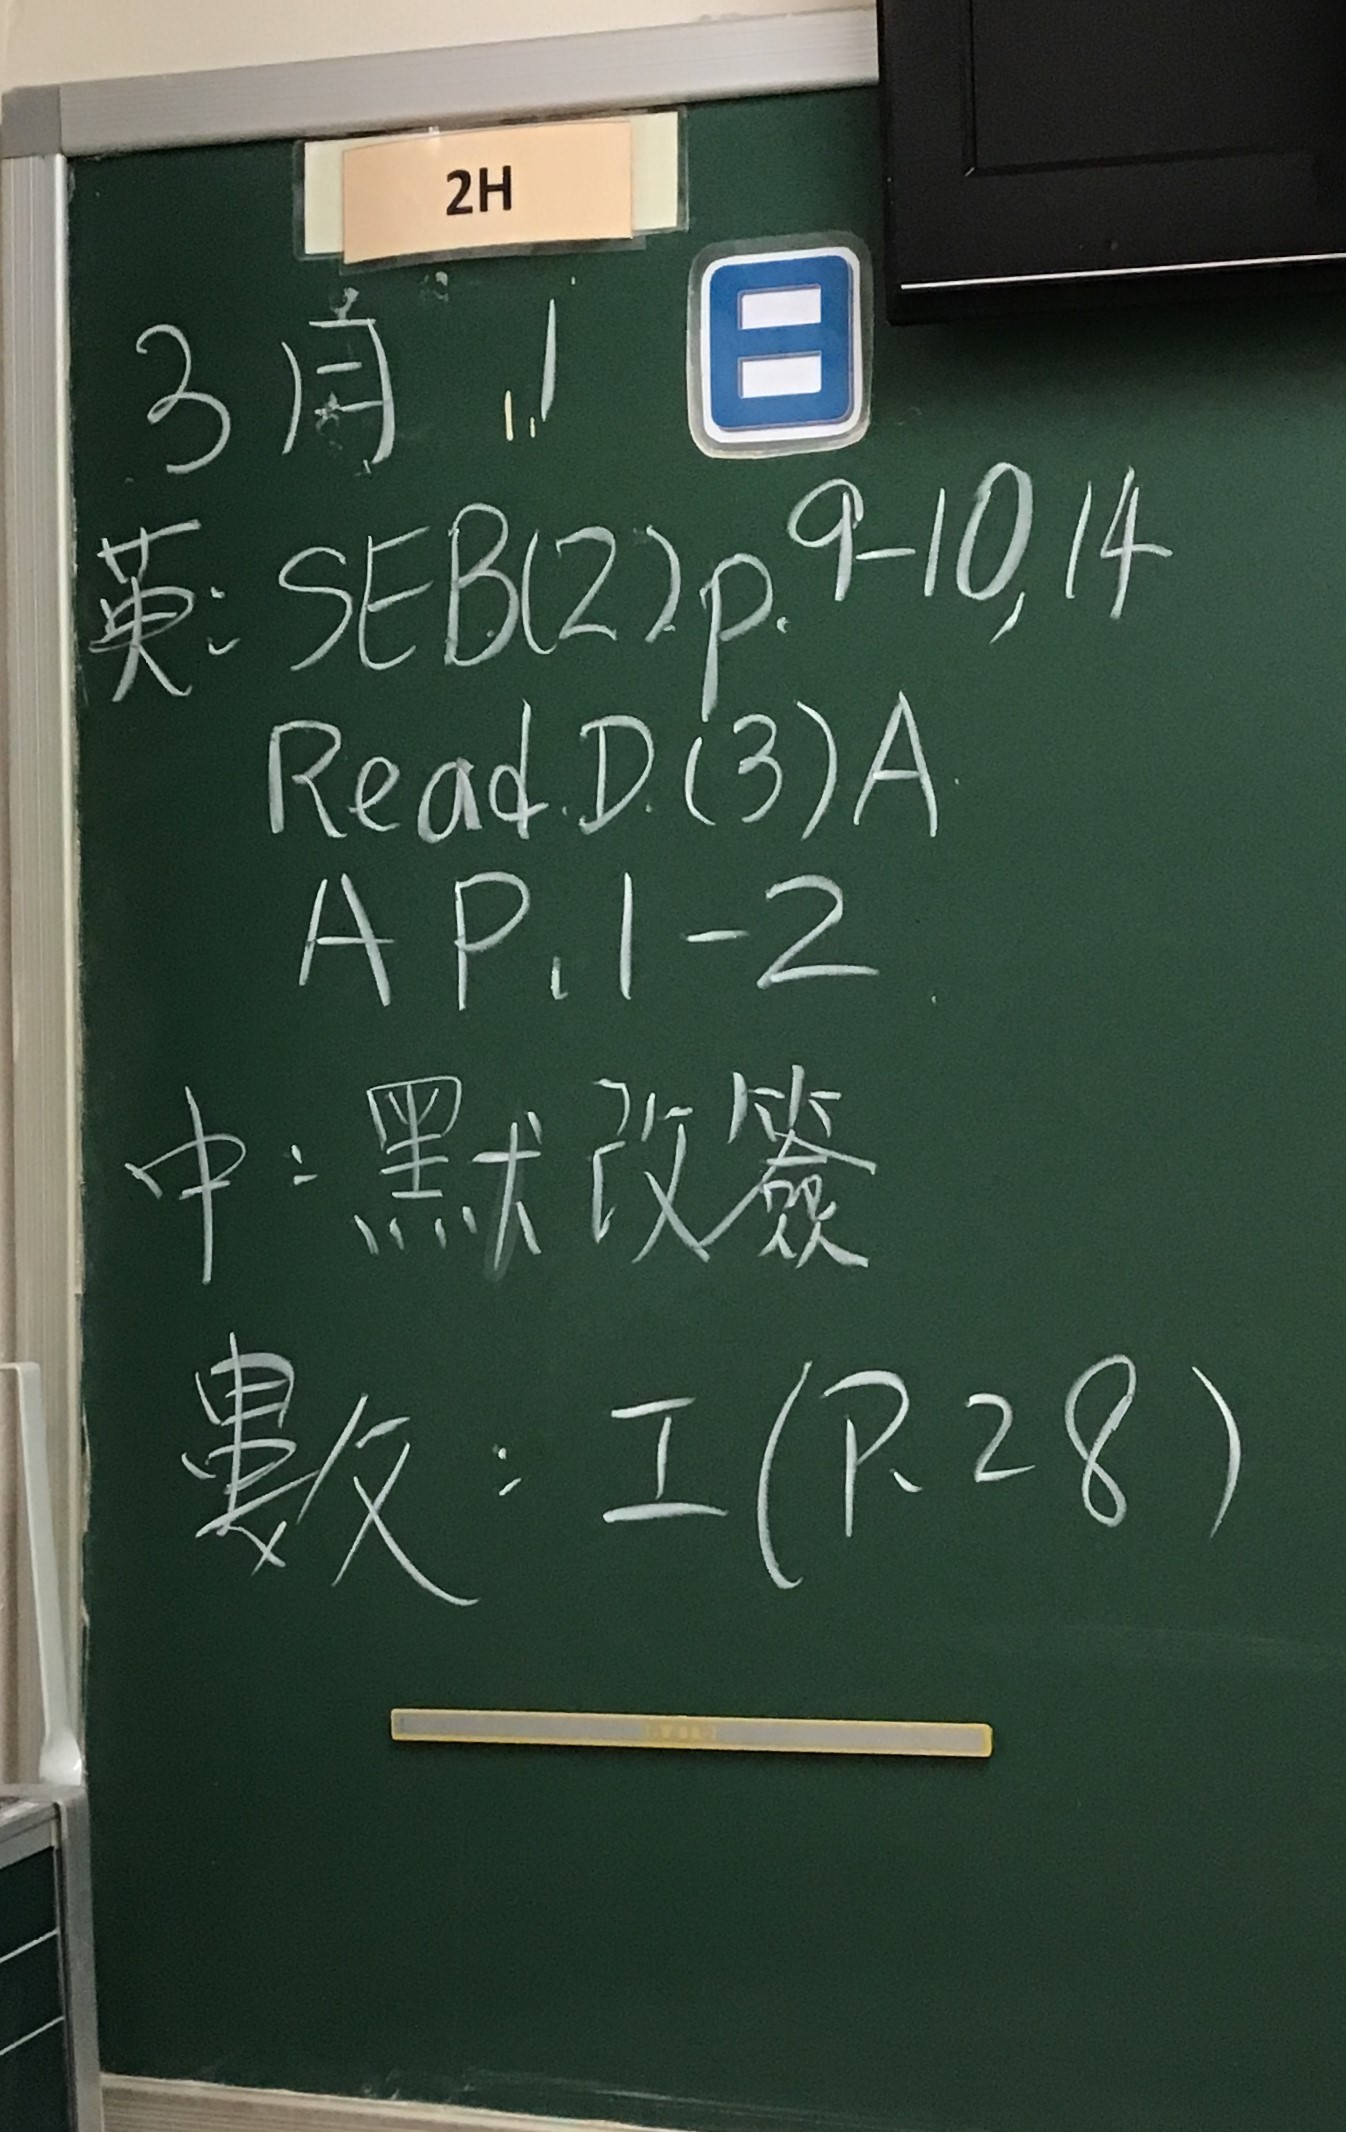 2H
3月 1 日
英: SEB(2) p.9-10, 14
Read.D.(3)A
A P.1-2
中: 默改簽
數: 工(P.28)